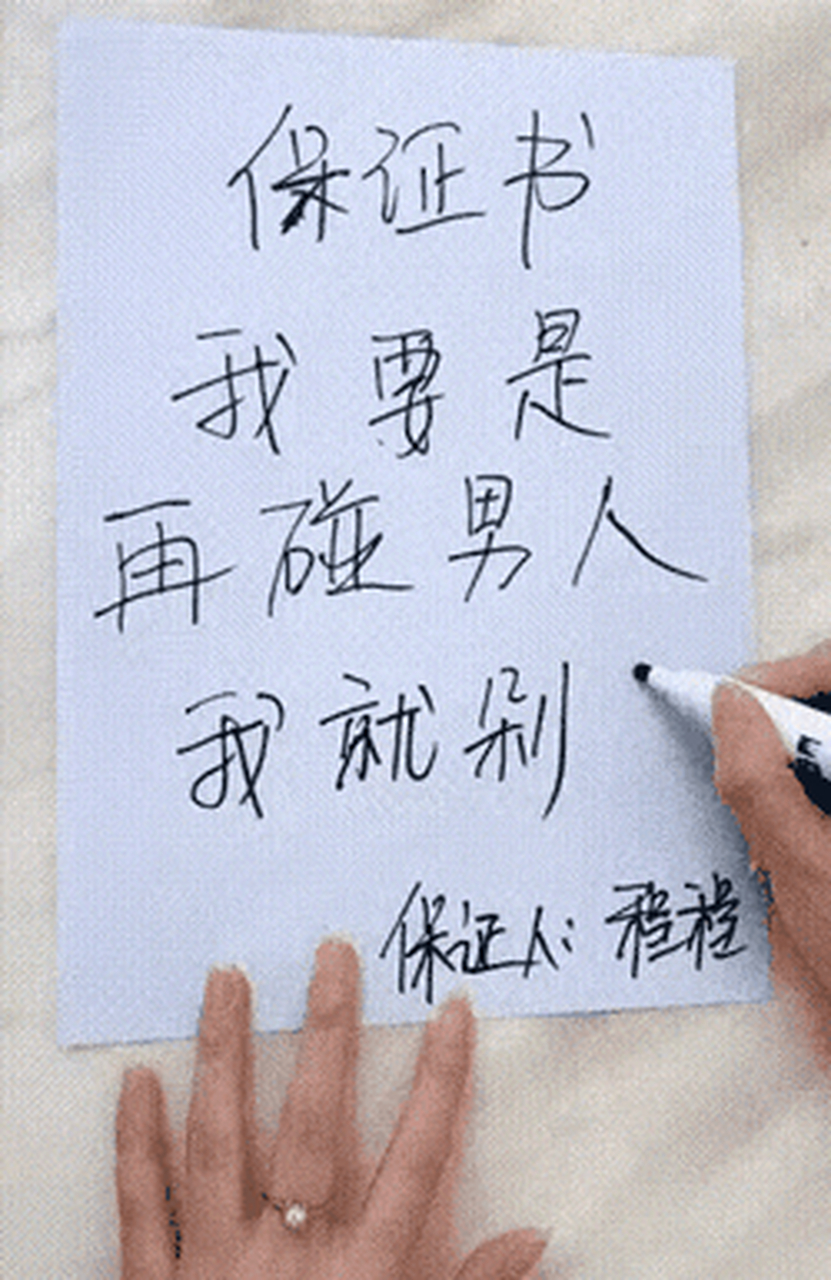 保证书
我要是
再碰男人
我就剁
保证人：程程